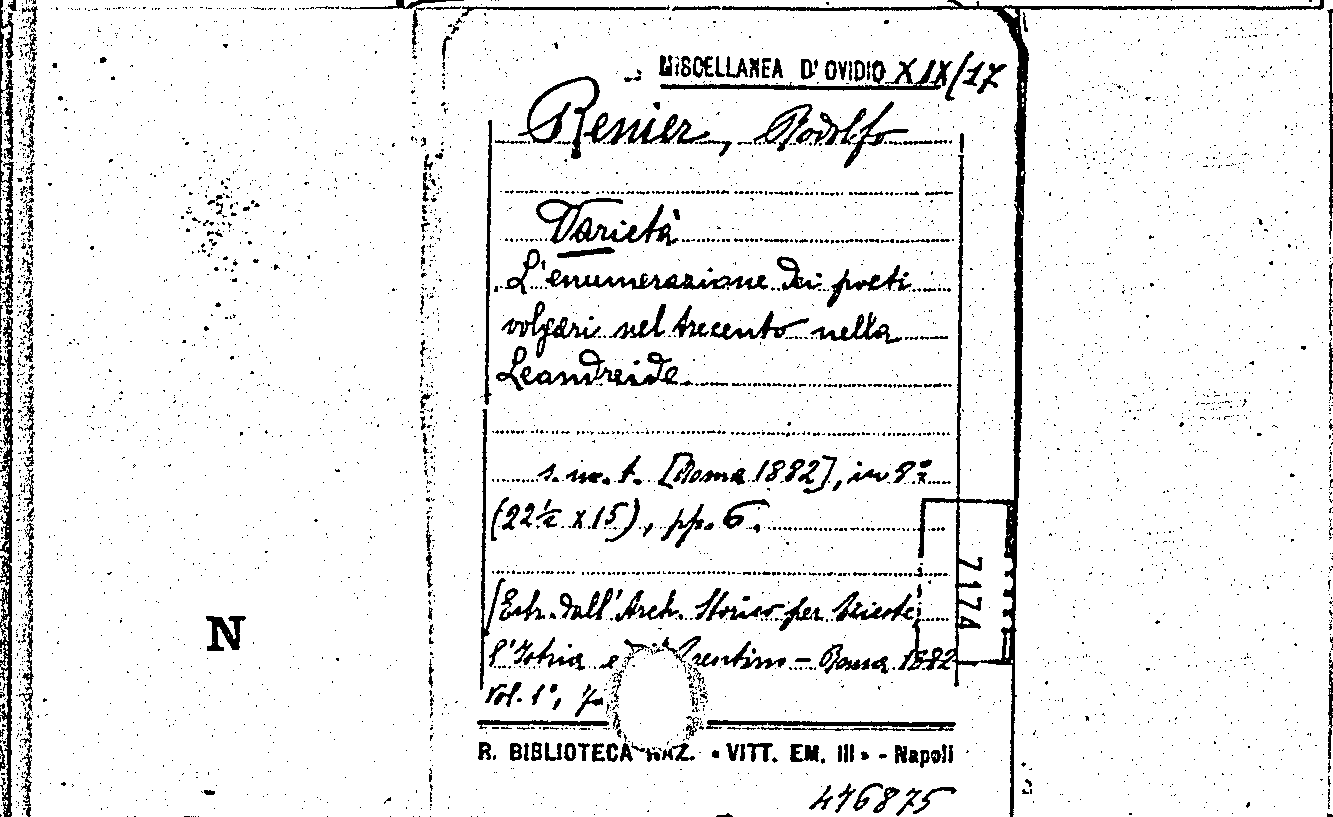 MISCELLANEA D'OVIDIO XIX/17
Renier, Rodolfo
Varietà
L'enumerazione dei poeti
volgari nel trecento nella
Leandreide.
s. n. t. [Roma 1882], in 8º
(22½ x 15), pp. 6.
(Estr. dall'Arch. Storico per Trieste,
l'Istria e il Trentino - Roma 1882
Vol. 1º,
7174
N
R. BIBLIOTECA NAZ. « VITT. EM. III » - Napoli
476875